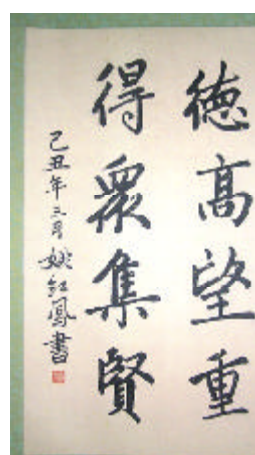 德高望重
得眾集賢
己丑年三月姚紅鳳書